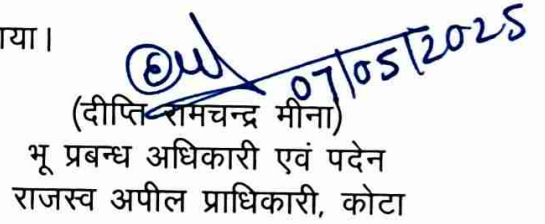 गया।
07/05/2025
(दीप्ति रामचन्द्र मीना)
भू प्रबन्ध अधिकारी एवं पदेन
राजस्व अपील प्राधिकारी, कोटा